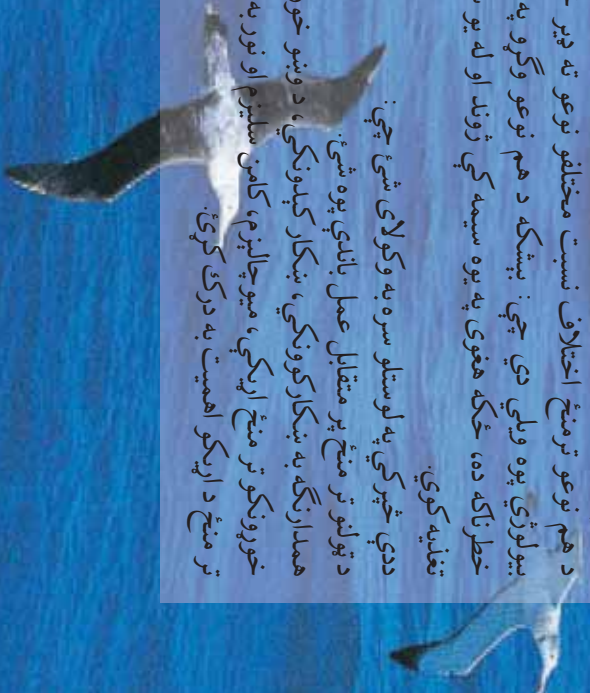 د هم نوعو ترمنځ اختلاف نسبت مختلفو نوعو ته ډیر
بیولوژي پوه ویلي دي چې: بېشکه د هم نوعو وګړو په
خطرناکه ده، ځکه هغوی په یوه سیمه کې ژوند او له یو
تغذیه کوي.
ددې څپرکي په لوستلو سره به وکولای شئ چې:
د ټولنو تر منځ پر متقابل عمل باندې پوه شئ.
همدارنګه به ښکار کوونکي، ښکار کېدونکي، د وینو
خوړونکو تر منځ اړیکې، میوچالیزم، کامن سلیزم او نور به
تر منځ د اړیکو اهمیت به درک کړئ.